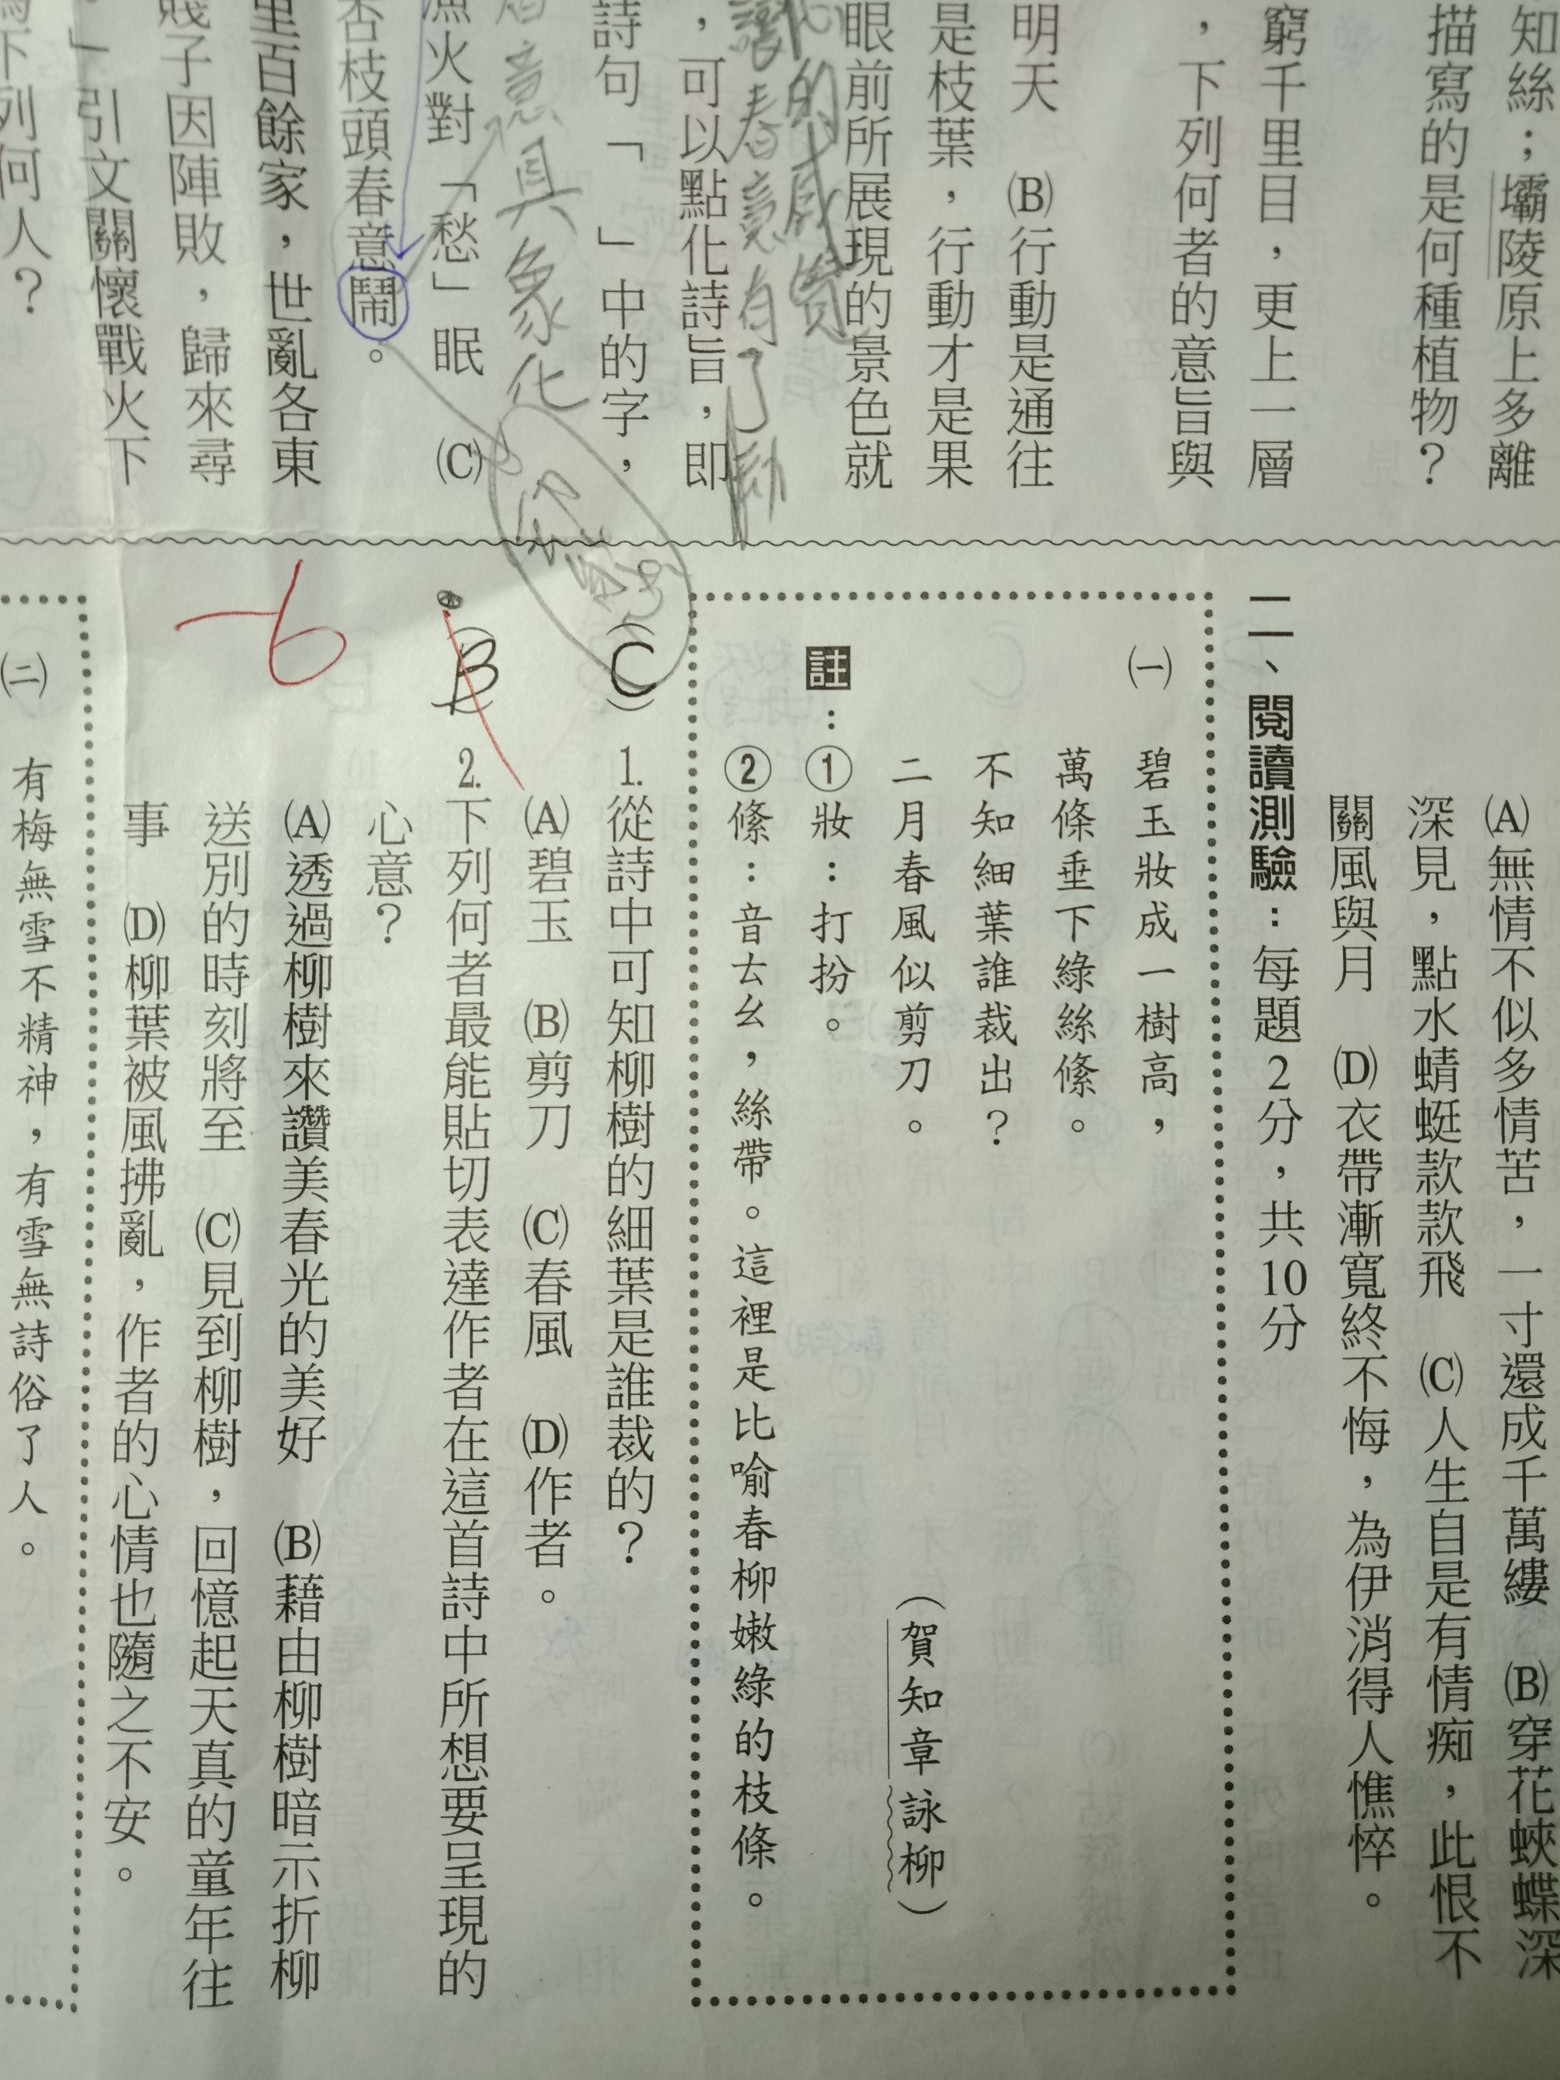 知絲；壩陵原上多離
描寫的是何種植物？
窮千里目，更上一層
，下列何者的意旨與
明天　(B)行動是通往
是枝葉，行動才是果
眼前所展現的景色就
的感覺
讓春意有了
，可以點化詩旨，即
詩句「　」中的字，
意具象化
漁火對「愁」眠　(C)
杏枝頭春意鬧。
里百餘家，世亂各東
賤子因陣敗，歸來尋
」引文關懷戰火下
下列何人？
(A)無情不似多情苦，一寸還成千萬縷　(B)穿花蛺蝶深
深見，點水蜻蜓款款飛　(C)人生自是有情痴，此恨不
關風與月　(D)衣帶漸寬終不悔，為伊消得人憔悴。
二、閱讀測驗：每題2分，共10分
㈠　碧玉妝成一樹高，
萬條垂下綠絲絛。
不知細葉誰裁出？
二月春風似剪刀。　（賀知章詠柳）
註：①妝：打扮。
②絛：音ㄊㄠ，絲帶。這裡是比喻春柳嫩綠的枝條。
（C）1.從詩中可知柳樹的細葉是誰裁的？
(A)碧玉　(B)剪刀　(C)春風　(D)作者。
（B）2.下列何者最能貼切表達作者在這首詩中所想要呈現的
心意？
(A)透過柳樹來讚美春光的美好　(B)藉由柳樹暗示折柳
送別的時刻將至　(C)見到柳樹，回憶起天真的童年往
事　(D)柳葉被風拂亂，作者的心情也隨之不安。
-6
㈡　有梅無雪不精神，有雪無詩俗了人。